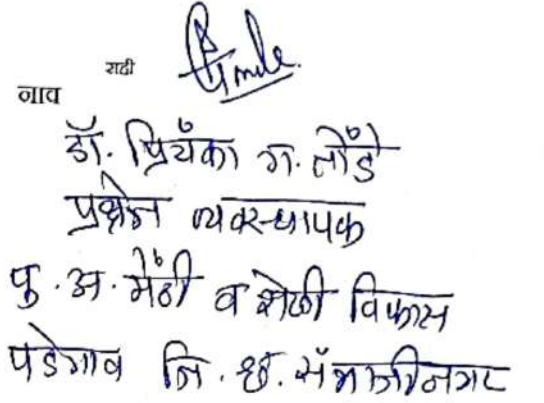 सही
नाव
डॉ. प्रियंका ग. तोंडे
प्रक्षेत्र व्यवस्थापक
पु. अ. मेंढी व शेळी विकास
पडेगाव जि. छ. संभाजीनगर